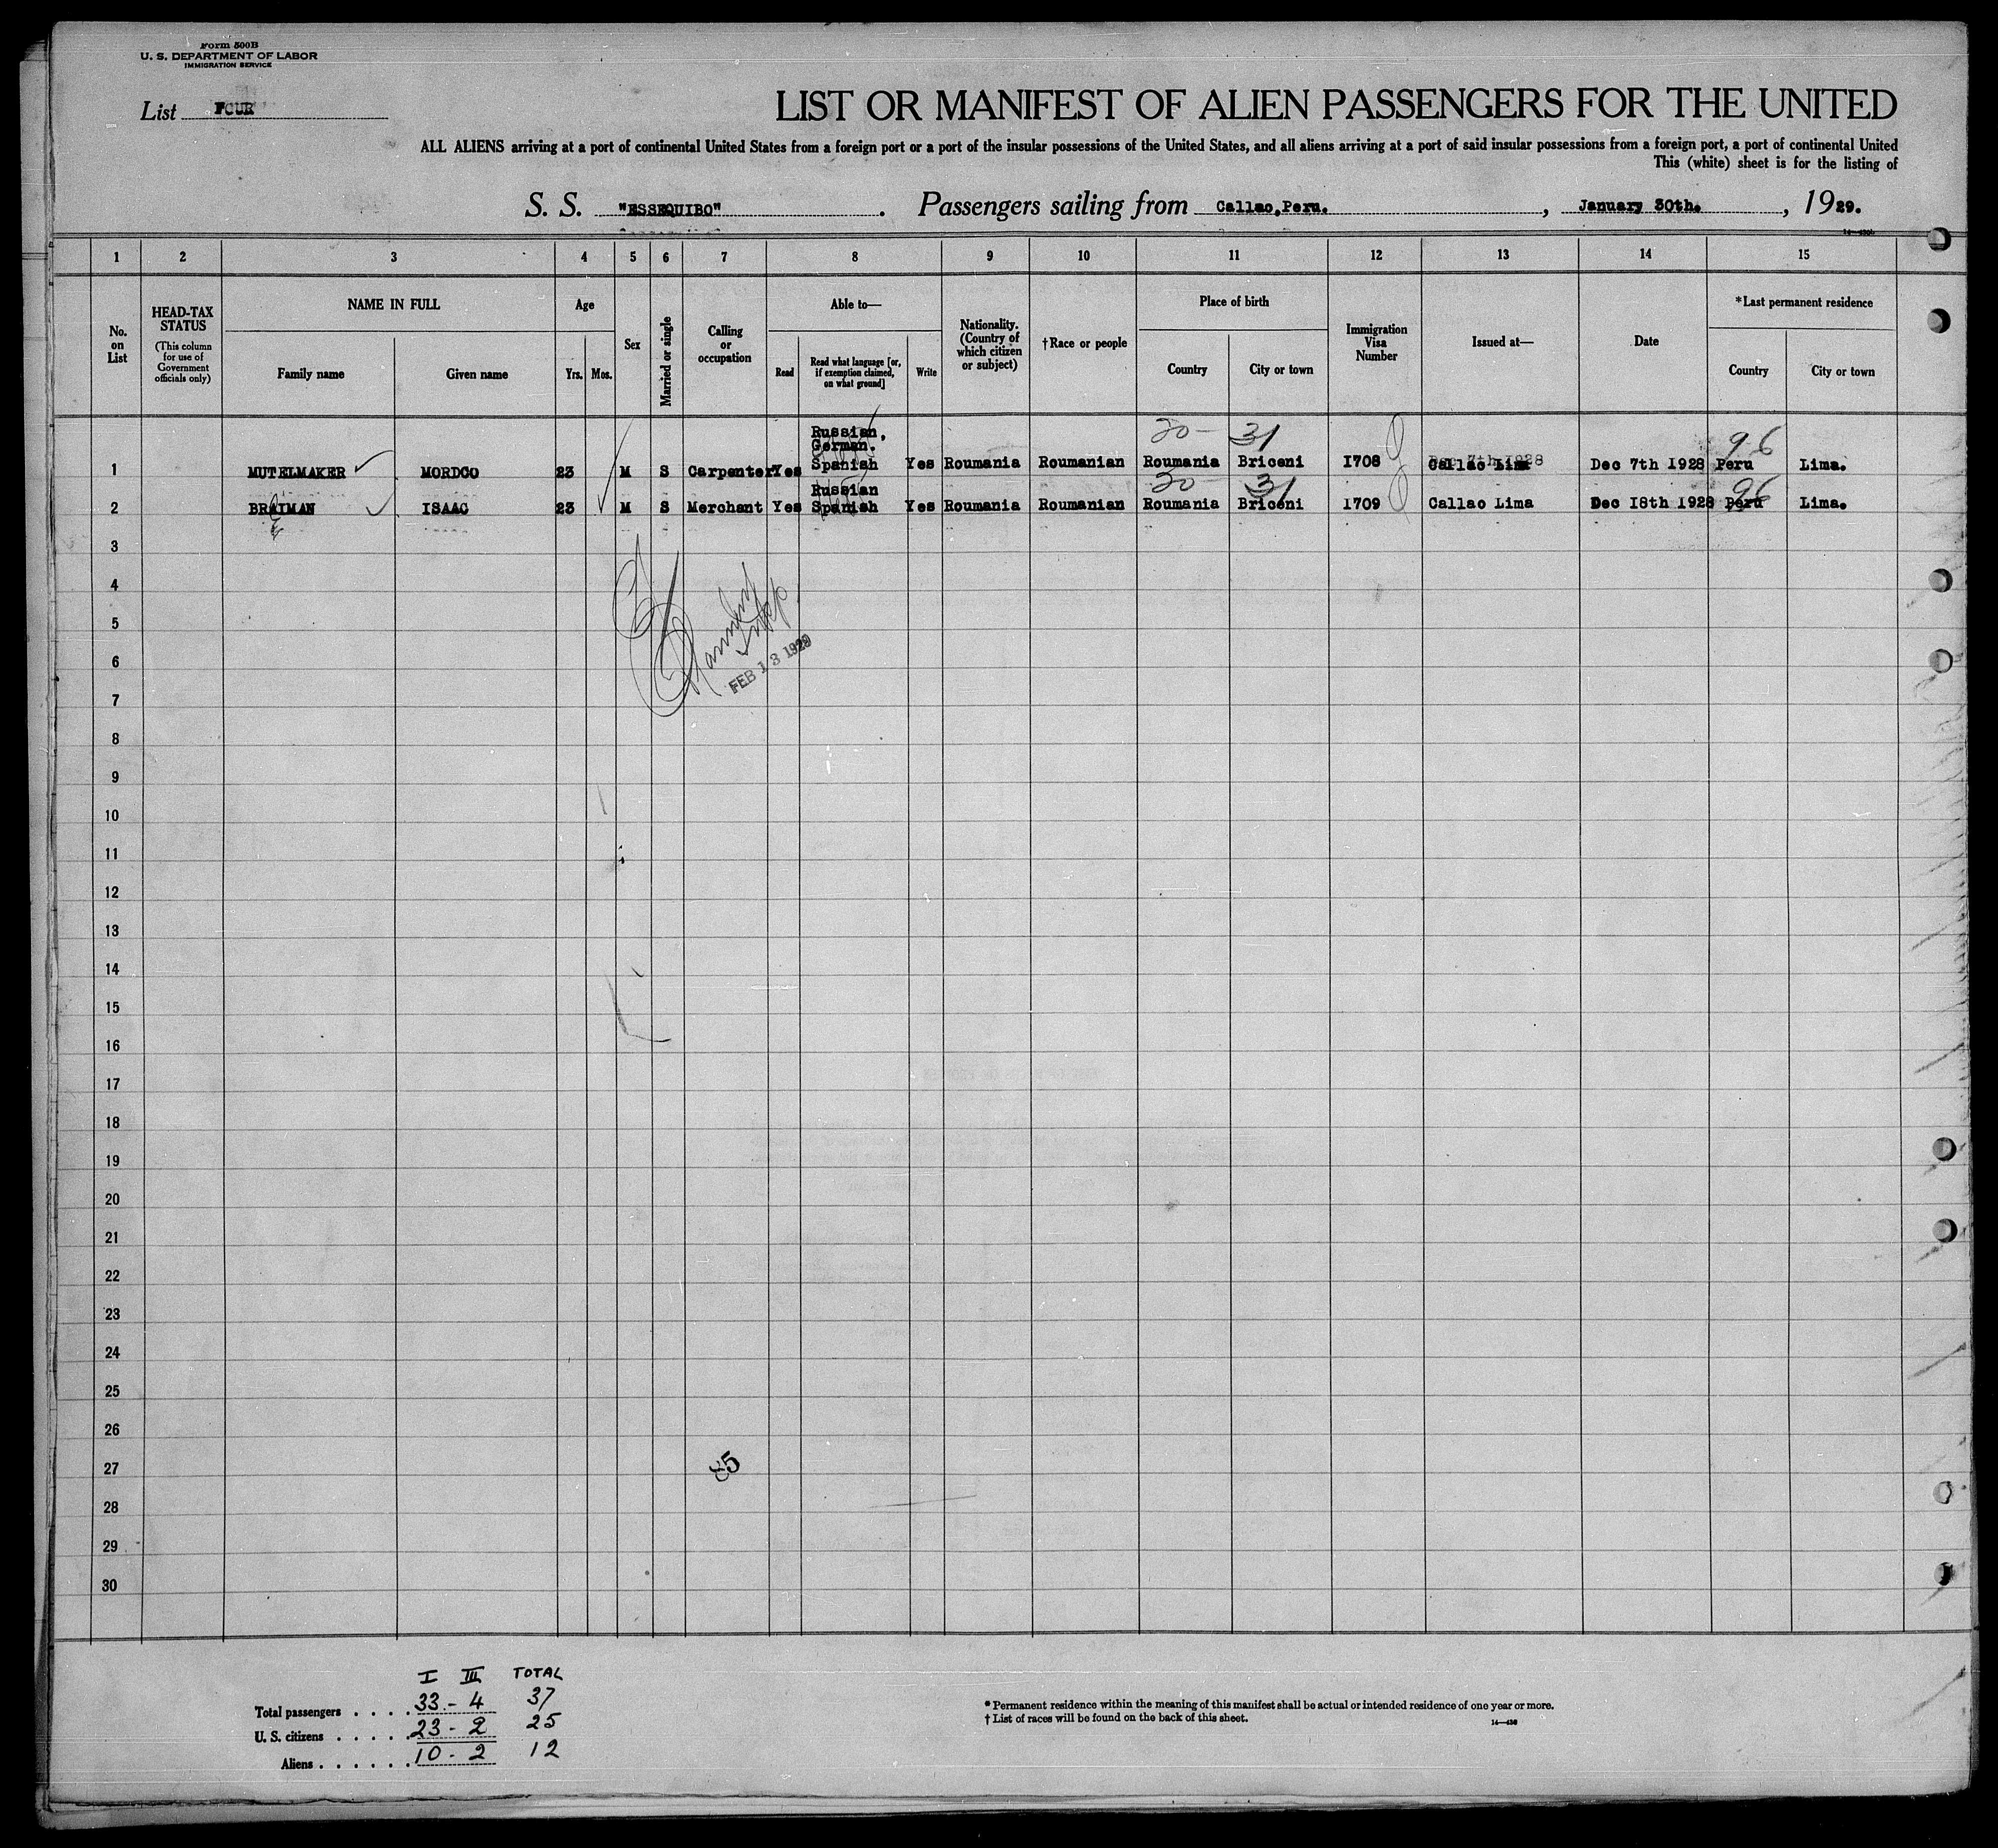 Form 500B
U. S. DEPARTMENT OF LABOR
IMMIGRATION SERVICE
List FOUR
LIST OR MANIFEST OF ALIEN PASSENGERS FOR THE UNITED
ALL ALIENS arriving at a port of continental United States from a foreign port or a port of the insular possessions of the United States, and all aliens arriving at a port of said insular possessions from a foreign port, a port of continental United
This (white) sheet is for the listing of
S. S. "ESSEQUIBO". Passengers sailing from Callao,Peru., January 30th., 1929.
1 2 3 4 5 6 7 8 9 10 11 12 13 14 15
No. on List
HEAD-TAX STATUS (This column for use of Government officials only)
NAME IN FULL
Family name Given name
Age
Yrs. Mos.
Sex
Married or single
Calling or occupation
Able to—
Read Read what language [or, if exemption claimed, on what ground] Write
Nationality. (Country of which citizen or subject)
†Race or people
Place of birth
Country City or town
Immigration Visa Number
Issued at—
Date
*Last permanent residence
Country City or town
20 - 31 96
1 MUTELMAKER MORDCO 23 M S Carpenter Yes Russian, German. Spanish Yes Roumania Roumanian Roumania Briceni I708 Callao Lima Dec 7th 1928 Peru Lima.
20 - 31 96
2 BRAIMAN ISAAC 23 M S Merchant Yes Russian Spanish Yes Roumania Roumanian Roumania Briceni I709 Callao Lima Dec I8th 1928 Peru Lima.
3
4
5
6
FEB 13 1929
7
8
9
10
11
12
13
14
15
16
17
18
19
20
21
22
23
24
25
26
27
85
28
29
30
I III TOTAL
Total passengers . . . . 33 - 4 37
U. S. citizens . . . . . 23 - 2 25
Aliens . . . . . . 10 - 2 12
* Permanent residence within the meaning of this manifest shall be actual or intended residence of one year or more.
† List of races will be found on the back of this sheet.